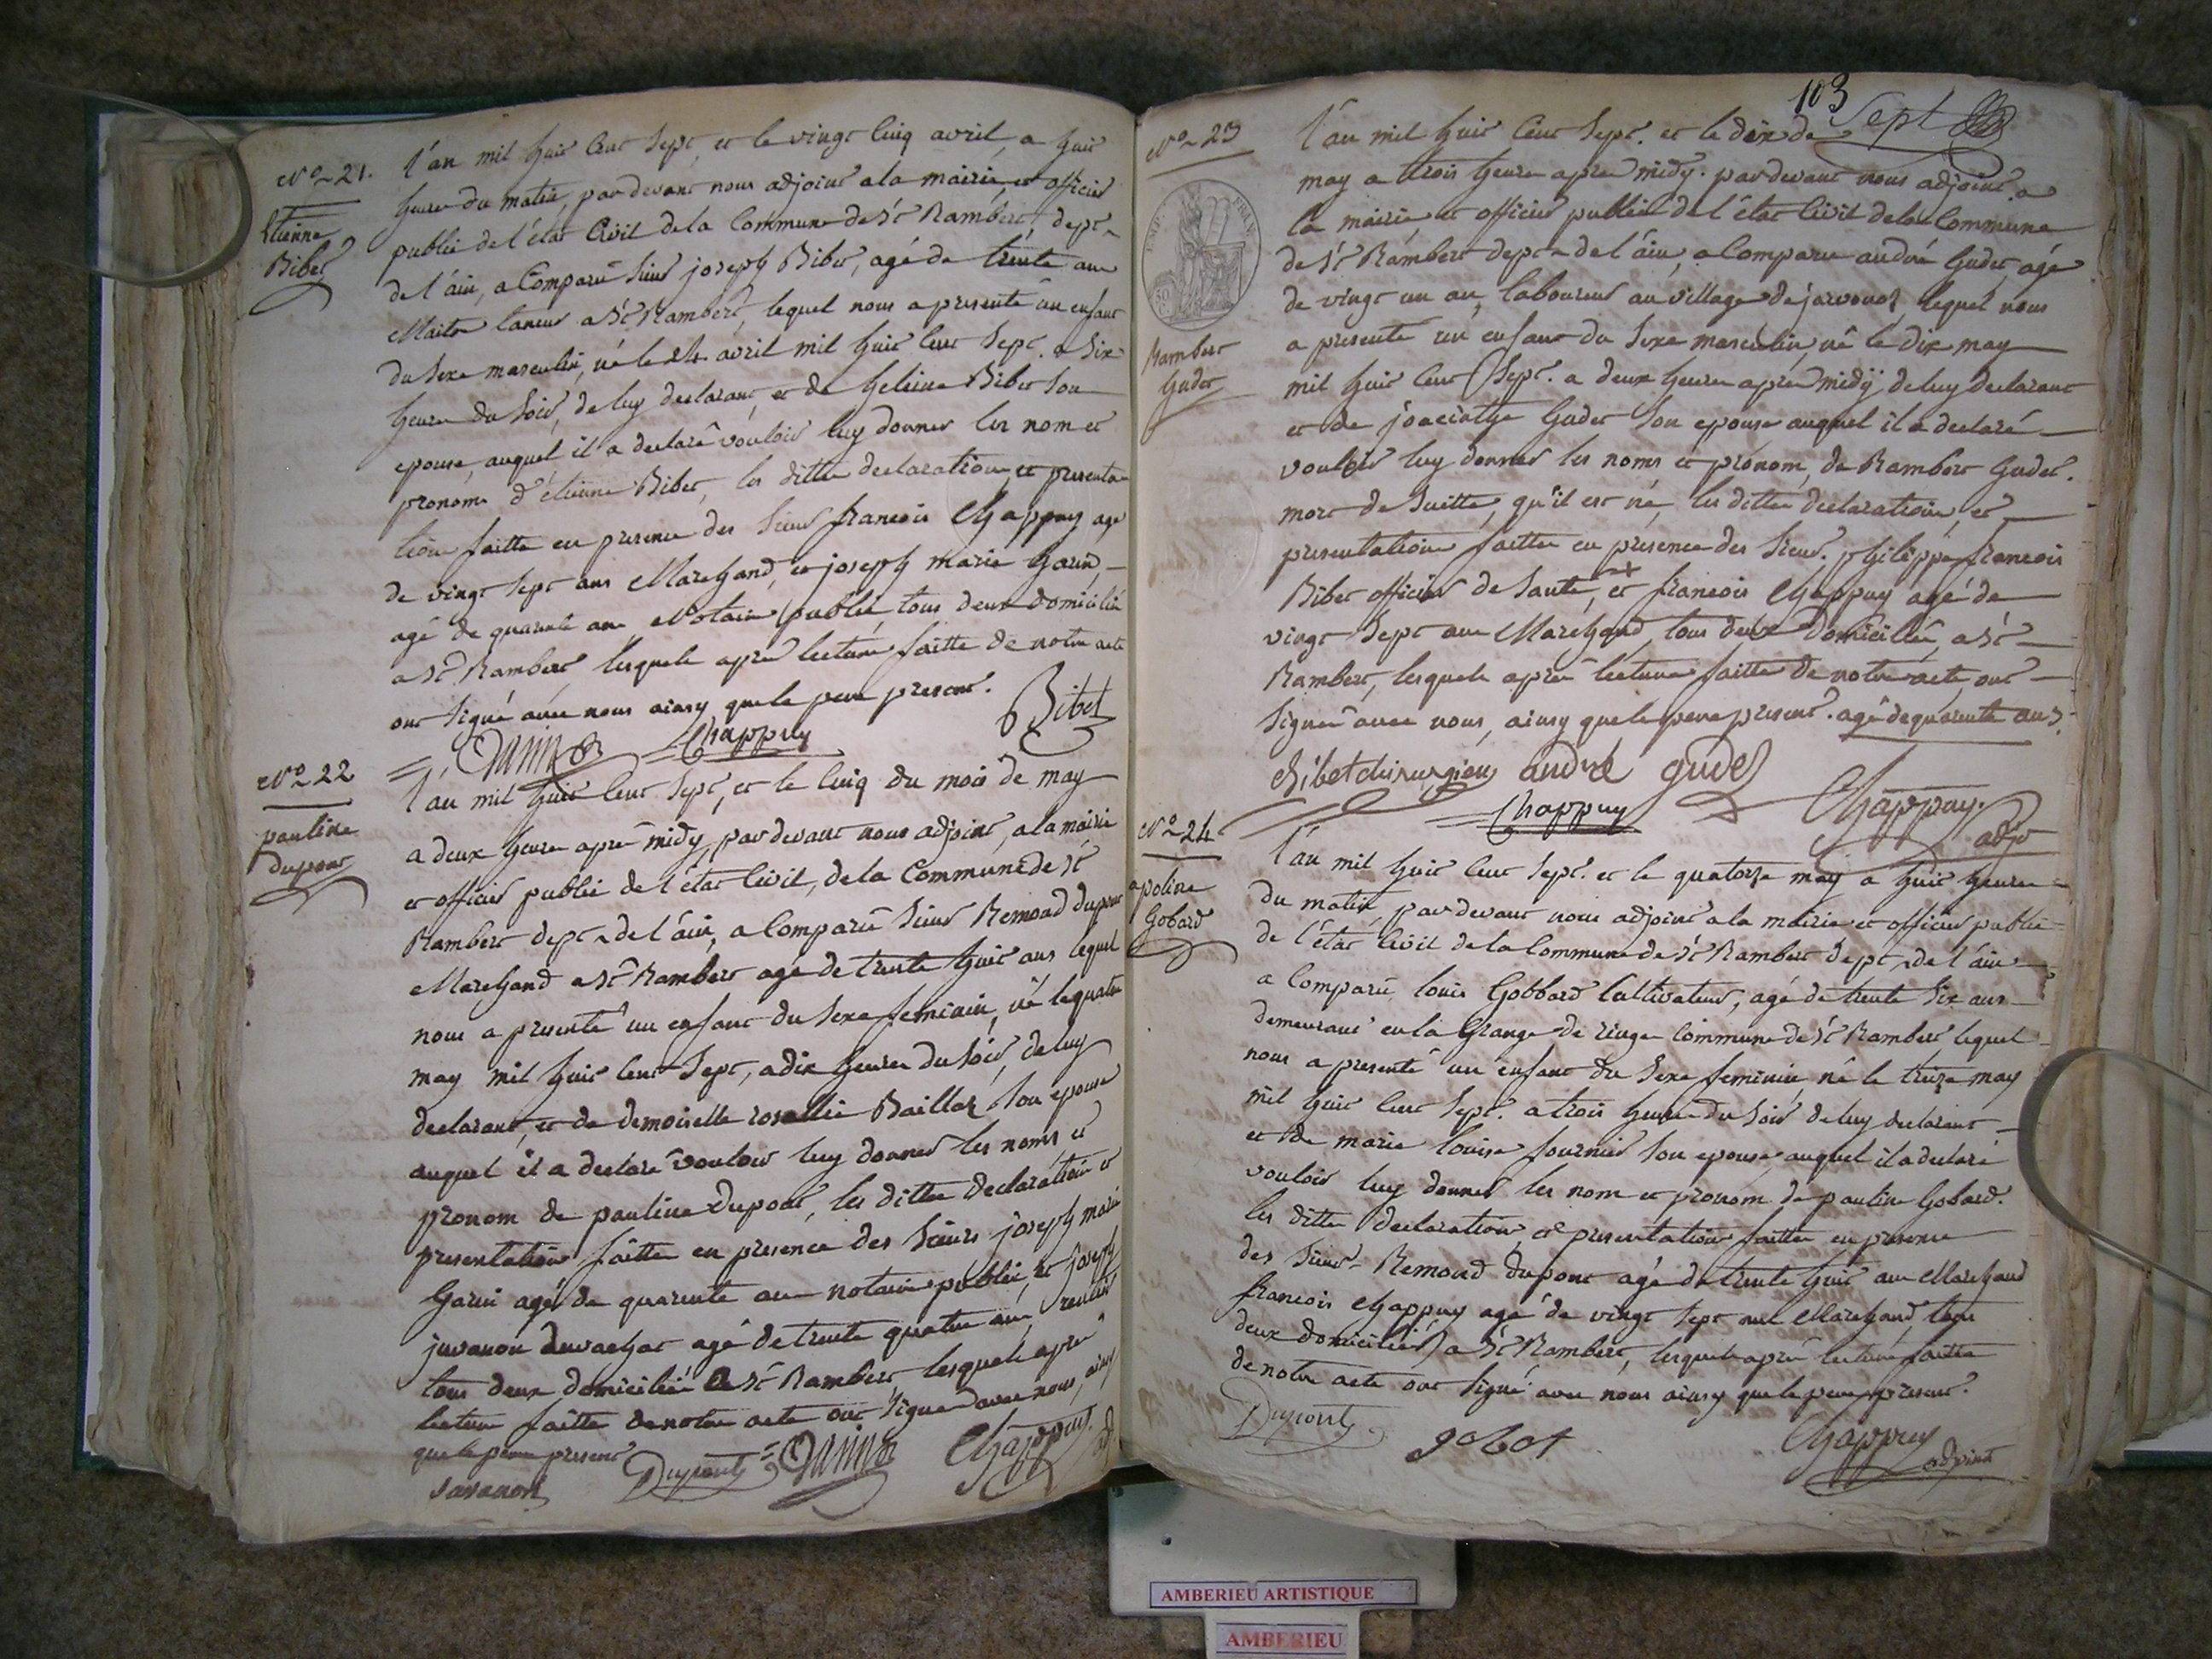 No 21.
Etienne
Bibet
l'an mil huit cent sept, et le vingt cinq avril, a huit
heure du matin, par devant nous adjoint a la mairie, et officier
public de l'état Civil de la Commune de St Rambert, dept
de l'ain, a Comparu Sieur joseph Bibet, agé de trente ans
Maitre taneur a St Rambert, lequel nous a presenté un enfant
du Sexe masculin, né le 24 avril mil huit cent Sept. a Six
heures du Soir, de luy declarant, et de heleine Bibet Son
epouse, auquel il a declaré vouloir luy donner les nom et
pronoms d'étienne Bibet, les dittes declaration et presenta
tion faitte en presence des Sieur francois Chappuy agé
de vingt sept ans Marchand, et joseph marie Garin,
agé de quarante ans Notaire public, tous deux domiciliés
a St Rambert, lesquels apres lecture faitte de notre acte
ont Signé avec nous ainsy que le pere present. Bibet
Chappuy
No 22
pauline
dupont
l'an mil huit cent Sept, et le Cinq du mois de may
a deux heure apres midy, par devant nous adjoint, a la mairie
et officier public de l'état Civil, de la Commune de St
Rambert dept de l'ain, a Comparu Sieur Remond dupont
Marchand a St Rambert agé de trente huit ans lequel
nous a presenté un enfant du Sexe feminin, né le quatre
may mil huit cent Sept, a dix heures du Soir, de luy
declarant, et de demoiselle rosallie Baillat Son epouse
auquel il a declaré vouloir luy donner les noms et
pronom de pauline dupont, les dittes declaration et
presentation faitte en presence des Sieurs joseph marie
Garin agé de quarente ans notaire public, et joseph
juvanon duvachat agé de trente quatre ans, rentier
tous deux domiciliés a St Rambert lesquels apres
lecture faitte de notre acte ont Signé avec nous, ainsy
que le pere present
Juvanon Dupont Chappuy
103 Sept
No 23
EMP. FRAN.
Rambert
Gudet
l'an mil huit Cent Sept. et le dix de
may a trois heures apres midy. par devant nous adjoint a
la mairie, et officier public de l'état Civil de la Commune
de St Rambert dept de l'ain, a Comparu andré Gudet, agé
de vingt un an, laboureur au village de javornoz, lequel nous
a presenté un enfant du Sexe masculin, né le dix may
mil huit cent Sept. a deux heures apres midy de luy declarant
et de joacinthe Gudet Son epouse auquel il a declaré
vouloir luy donner les noms et pronom, de Rambert Gudet.
mort de Suitte, qu'il est né, les dittes declaration, et
presentation faittes en presence des Sieur. philippe francois
Bibet officier de Santé, et francois Chappuy agé de
vingt Sept ans Marchand, tous deux domiciliés, a St
Rambert, lesquels apres lecture faitte de notre acte, ont
Signée avec nous, ainsy que le pere present. agé de quarente ans
Bibet chirurgien andré gudet
Chappuy Chappuy
adjo
No 24
apoline
Gobard
l'an mil huit Cent Sept. et le quatorze may a huit heures
du matin, par devant nous adjoint a la mairie et officier public
de l'état Civil de la Commune de St Rambert dept de l'ain
a Comparu louis Gobbard Cultivateur, agé de trente Six ans
demeurant en la Grange de ringe Commune de St Rambert lequel
nous a presenté un enfant du Sexe feminin né le treize may
mil huit Cent Sept. a trois heure du Soir de luy declarant
et de marie louise fournier Son epouse auquel il a declaré
vouloir luy donner les nom et pronom de pauline Gobard.
les dittes declaration, et presentation faittes en presence
des Sieur Remond dupont agé de trente huit ans Marchand
francois Chappuy agé de vingt Sept ans Marchand, tous
deux domiciliés a St Rambert, lesquels apres lecture faitte
de notre acte ont Signé avec nous ainsy que le pere present.
Dupont gobot Chappuy
adjoint
AMBERIEU ARTISTIQUE
AMBERIEU